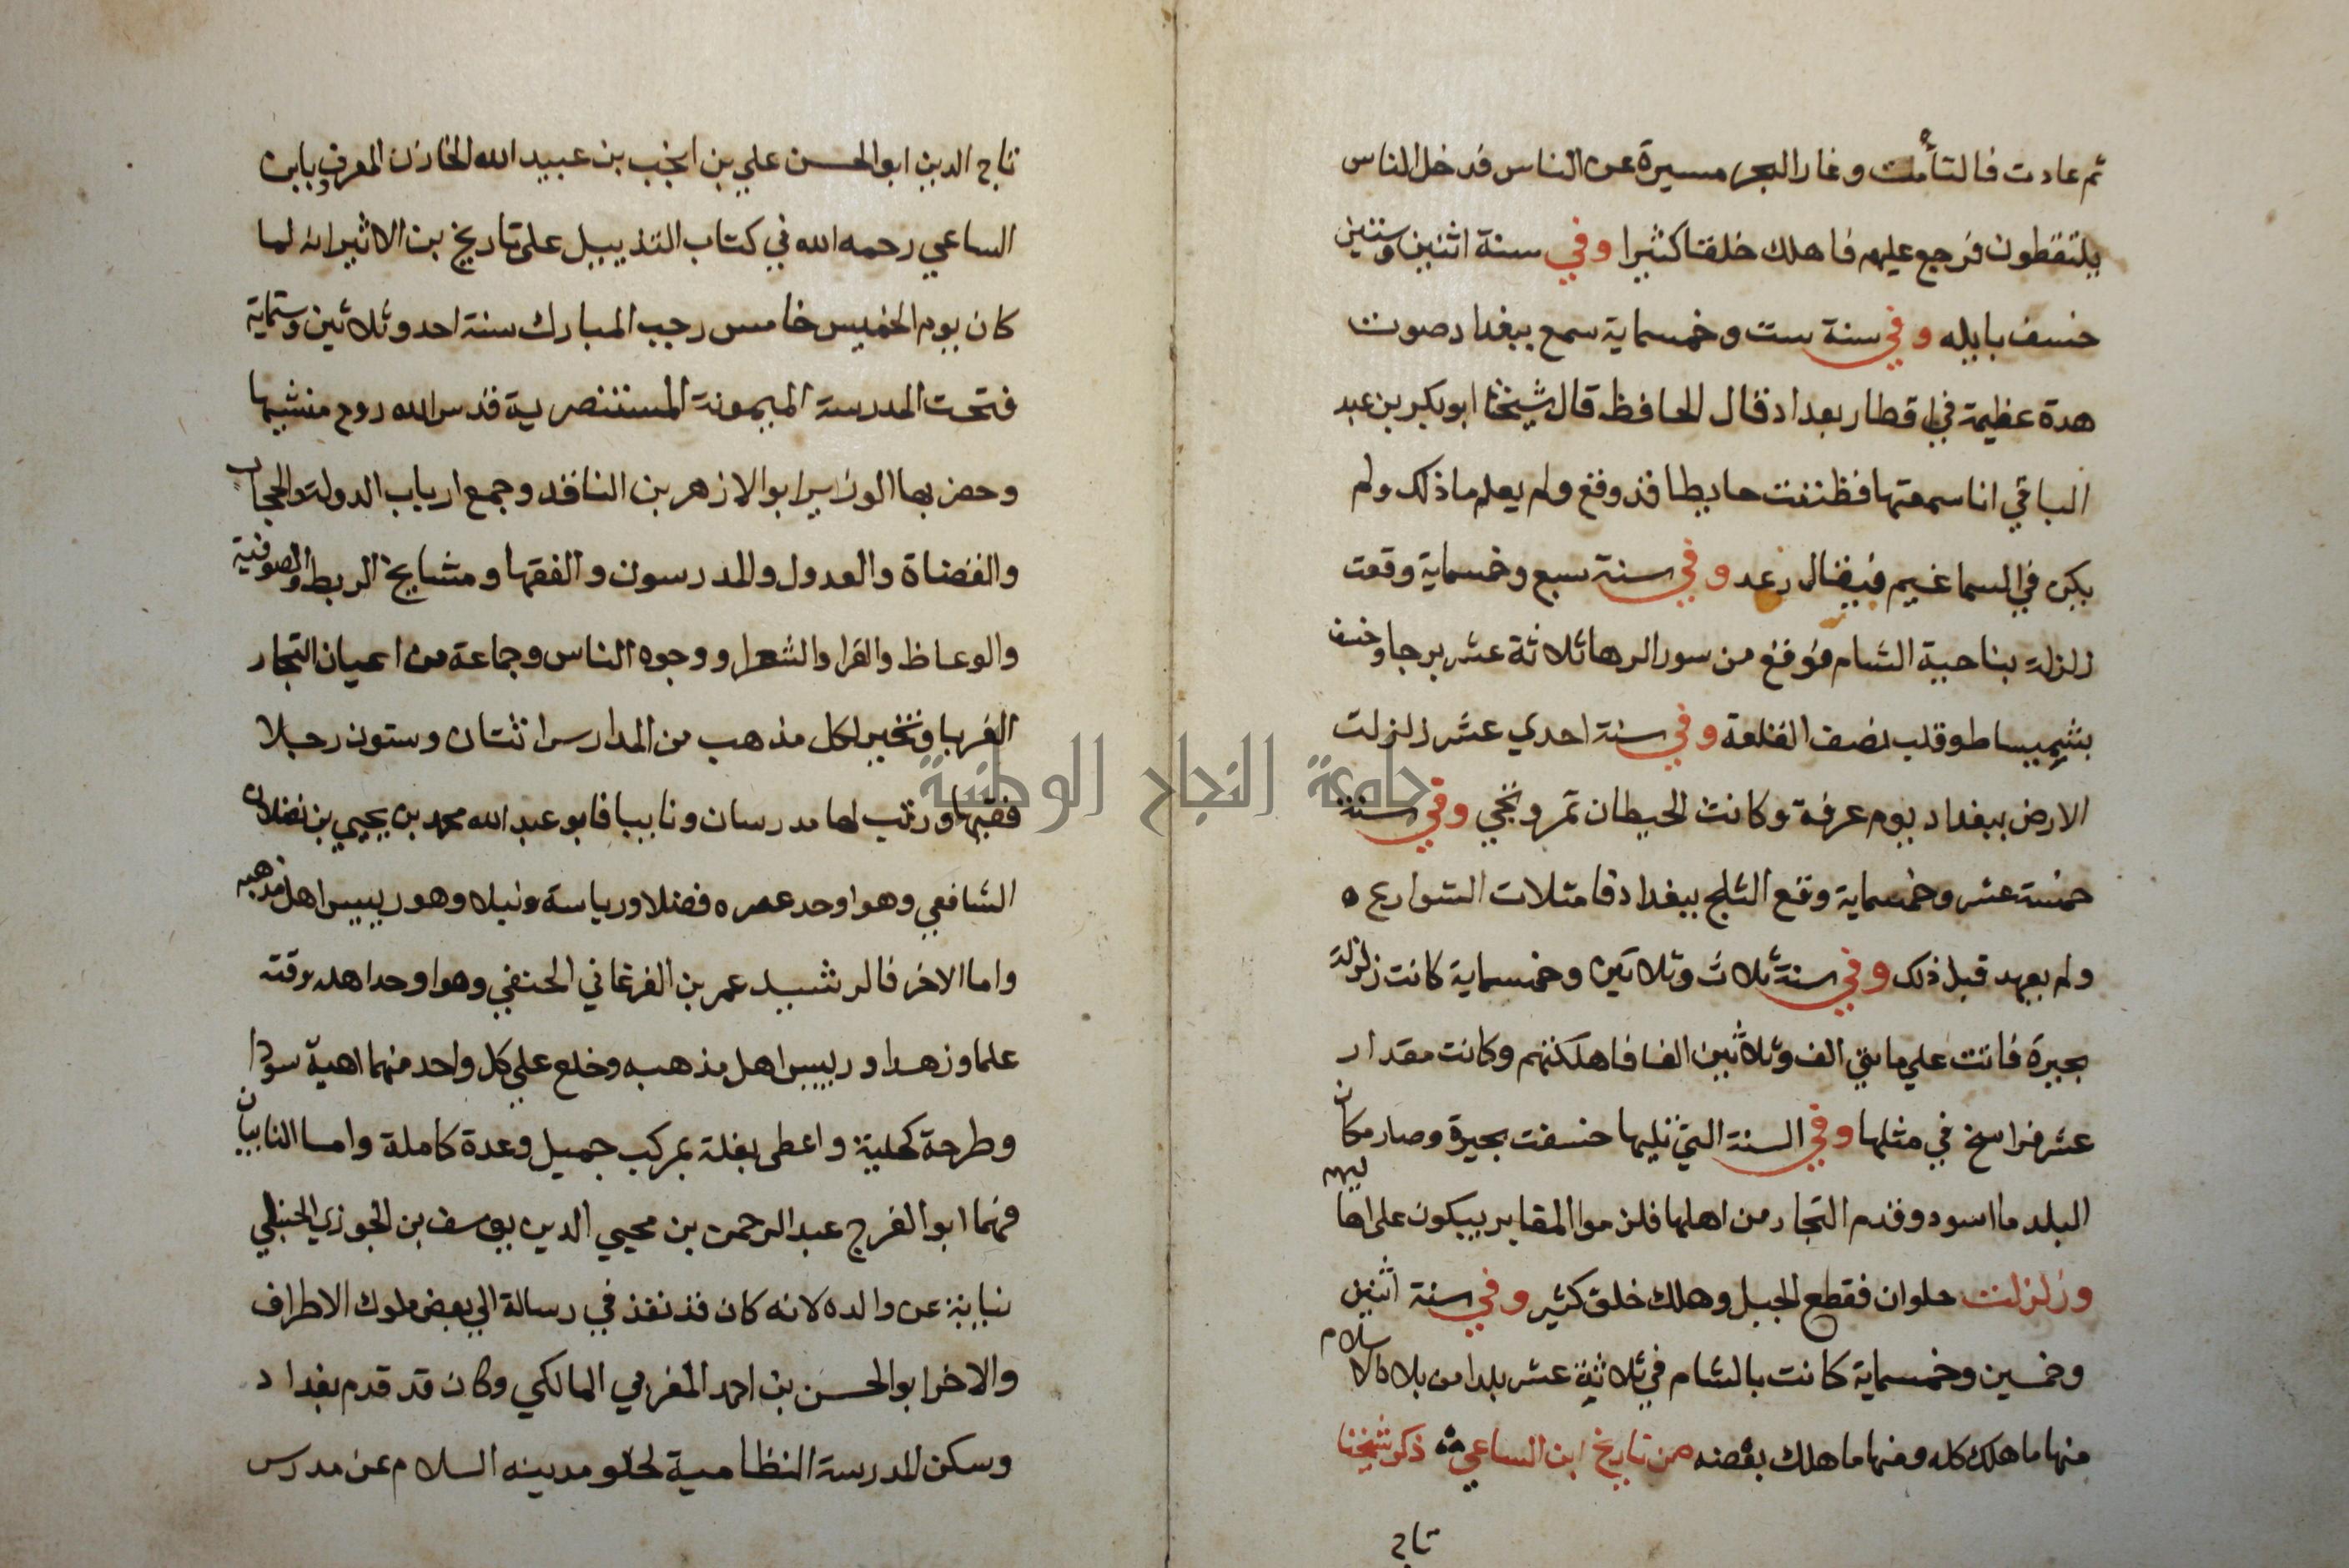 ثم عادت فالتأمت وغار البحر مسيرة عن الناس فدخل الناس
يلتقطون فرجع عليهم فاهلك خلقا كثيرا وفي سنة اثنين وستين
خسف بايله وفي سنة ست وخمسماية سمع ببغداد صوت
هدة عظيمة في اقطار بغداد قال الحافظ قال شيخنا ابو بكر بن عبد
الباقي انا سمعتها فظننت حايطا قد وقع ولم يعلم ما ذلك ولم
يكن في السما غيم فيقال رعد وفي سنة سبع وخمسماية وقعت
زلزلة بناحية الشام فوقع من سور الرها ثلاثة عشر برجا وخسف
بشميساط وقلب نصف القلعة وفي سنة احدي عشر زلزلت
الارض ببغداد يوم عرفة وكانت الحيطان تمر وتجي وفي سنة
خمسة عشر وخمسماية وقع الثلج ببغداد فامتلات الشوارع ه
ولم يعهد قبل ذلك وفي سنة ثلاث وثلاثين وخمسماية كانت زلزلة
بجيرة فاتت علي مايتي الف وثلاثين الفا فاهلكتهم وكانت مقدار
عشر فراسخ في مثلها وفي السنة التي تليها خسفت بجيرة وصار مكان
البلد ما اسود وقدم التجار من اهلها فلزموا المقابر يبكون على اهاليهم
وزلزلت حلوان فقطع الجبل وهلك خلق كثير وفي سنة اثنين
وخمسين وخمسماية كانت بالشام في ثلاثية عشر بلدا من بلاد الاسلام
منها ما هلك كله ومنها ما هلك بعضه من تاريخ ابن الساعي ذكر شيخنا
تاج
تاج الدين ابو الحسن علي بن انجب بن عبيد الله الخازن المعروف بابن
الساعي رحمه الله في كتاب التذييل على تاريخ بن الاثير انه لما
كان يوم الخميس خامس رجب المبارك سنة احد وثلاثين وستماية
فتحت المدرسة الميمونة المستنصرية قدس الله روح منشيها
وحضر بها الوزير ابو الازهر بن الناقد وجمع ارباب الدولة والحجاب
والقضاة والعدول والمدرسون والفقها ومشايخ الربط والصوفية
والوعاظ والقرا والشعرا ووجوه الناس وجماعة من اعيان التجار
الغربا وتخير لكل مذهب من المدارس اثنتان وستون رجلا
فقيها ورتب لها مدرسان ونايبا فابو عبد الله محمد بن يحيي بن فضلان
الشافعي وهو اوحد عصره فضلا ورياسة ونبلا وهو رييس اهل مذهبه
واما الاخر فالرشيد عمر بن الفرغاني الحنفي وهو اوحد اهل وقته
علما وزهدا ورييس اهل مذهبه وخلع علي كل واحد منهما اهبة سودا
وطرحة كحلية واعطي بغلة بمركب جميل وعدة كاملة واما النايبان
فهما ابو الفرج عبد الرحمن بن محيي الدين يوسف بن الجوزي الحنبلي
نيابة عن والده لانه كان قد نفذ في رسالة الي بعض ملوك الاطراف
والاخر ابو الحسن بن احمد المغربي المالكي وكان قد قدم بغداد
وسكن المدرسة النظامية لخلو مدينه السلام عن مدرس
جامعة النجاح الوطنية